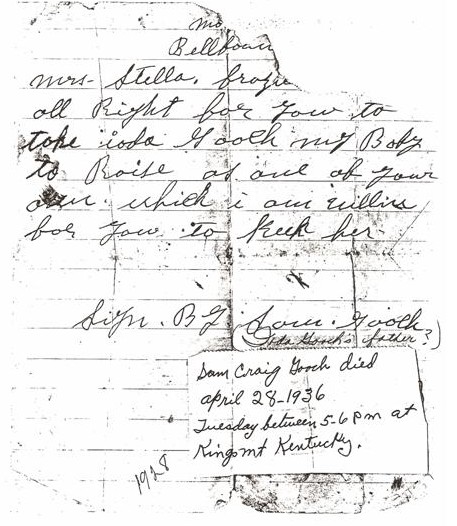 mo,
Bellbown
mrs. Stella. frazie
all Right for you to
take ioda Gooch my Baby
to Raise as one of your
own. which i am willin
for you to keek her
Sign. By Sam. Gooch
(Ioda Gooch's father?)
Sam Craig Gooch died
april 28-1936
Tuesday between 5-6 pm at
Kingsmt Kentucky.
1928